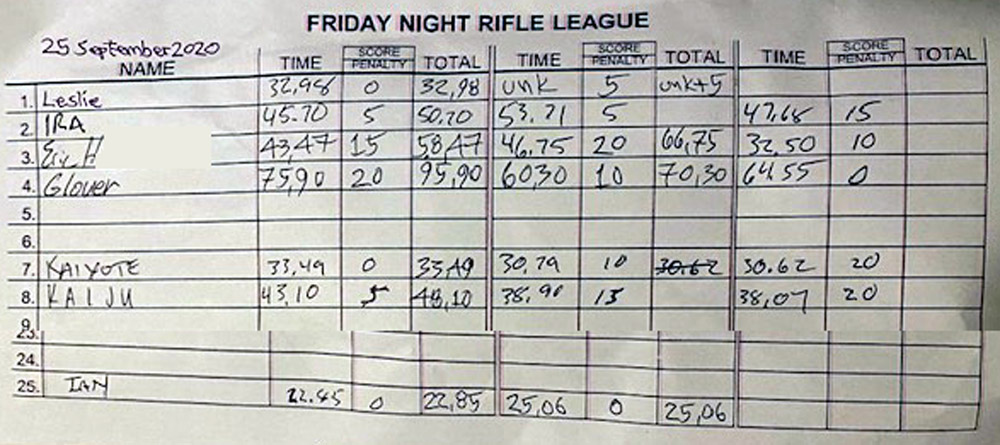 FRIDAY NIGHT RIFLE LEAGUE
25 September 2020
NAME TIME SCORE PENALTY TOTAL TIME SCORE PENALTY TOTAL TIME SCORE PENALTY TOTAL
1. Leslie 32,98 0 32,98 unk 5 unk+5
2. IRA 45.70 5 50.70 53.71 5 47.68 15
3. 43,47 15 58,47 46.75 20 66,75 32.50 10
4. Glover 75,90 20 95,90 60,30 10 70,30 64.55 0
5.
6.
7. KAIYOTE 33,49 0 33,49 30,79 10 30.62 30.62 20
8. KAIJU 43,10 5 48,10 38,90 15 38,07 20
9.
23.
24.
25. IAN 22.85 0 22,85 25,06 0 25,06